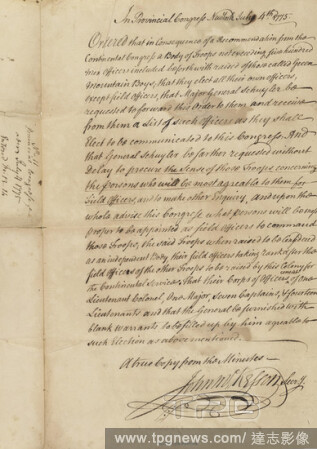 In Provincial Congress New York July 4th 1775
Ordered that in Consequence of a Recommendation from the
Continental Congress a Body of Troops not exceeding five hundred
Men Officers included be forthwith raised of those called Green
Mountain Boys, that they elect all their own officers,
except field officers, that Major General Schuyler be
requested to forward this Order to them and receive
from them a List of such Officers as they shall
Elect to be communicated to this Congress. And
that General Schuyler be farther requested without
Delay to procure the Sense of those Troops concerning
the Persons who will be most agreable to them for
Field Officers, and to make other Enquiry, and upon the
whole advise this Congress what persons will be
proper to be appointed as field Officers to command
those Troops, the said Troops when raised to be Considered
as an independent Body, their field officers taking rank after the
field Officers of the other Troops to be raised by this Colony for
the Continental Service, That their Corps of Officers be one
Lieutenant Colonel, One Major, Seven Captains, & fourteen
Lieutenants and that the General be furnished with
blank warrants to be filled up by him agreable to
such Election as abovementioned.
A true Copy from the Minutes
John McKesson Secry.
TPG
www.tpgnews.com | 達志影像